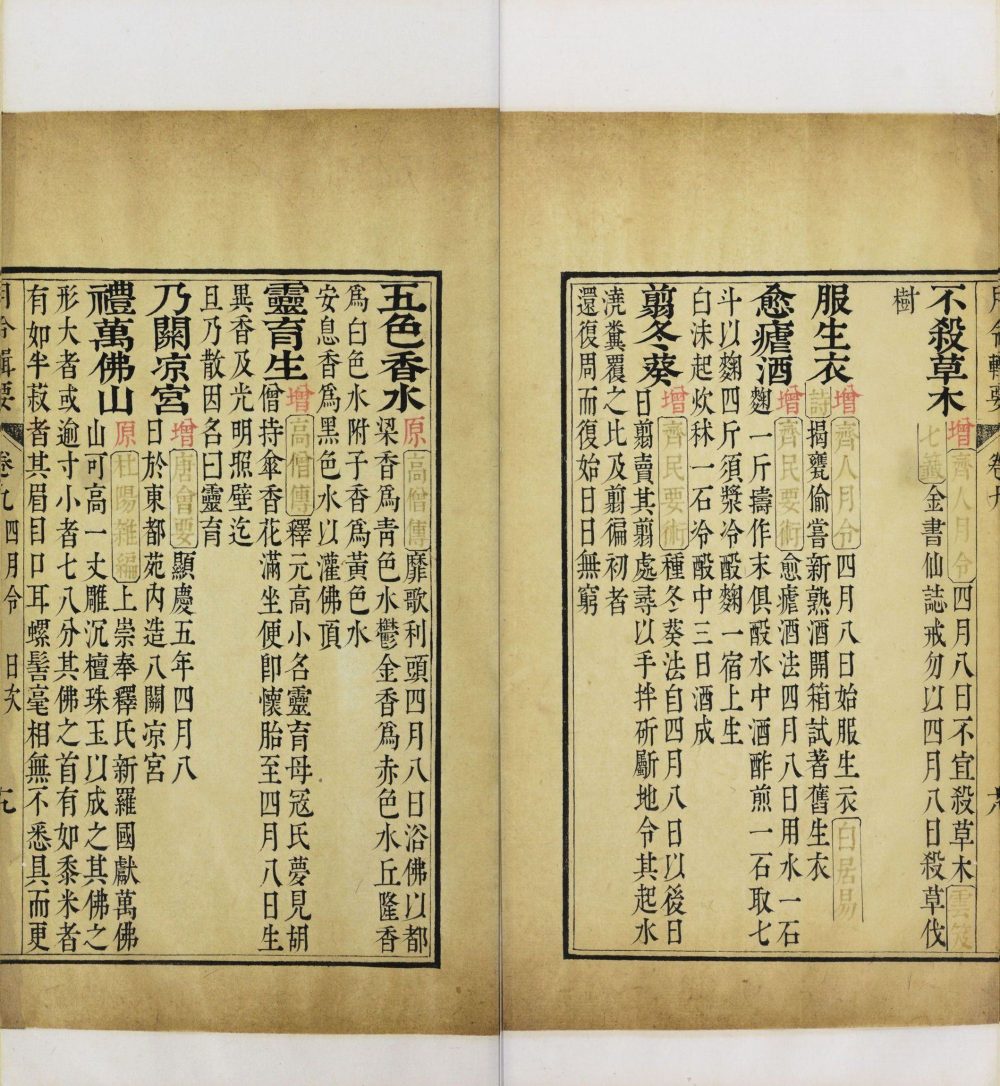 月令輯要
卷九
不殺草木
增齊人月令四月八日不宜殺草木雲笈
七籤金書仙誌戒勿以四月八日殺草伐
樹
服生衣
增齊人月令四月八日始服生衣白居易
詩揭甕偷嘗新熟酒開箱試著舊生衣
愈瘧酒
增齊民要術愈瘧酒法四月八日用水一石
麴一斤擣作末俱酘水中酒酢煎一石取七
斗以麴四斤須漿冷酘麴一宿上生
白沫起炊秫一石冷酘中三日酒成
翦冬葵
增齊民要術種冬葵法自四月八日以後日
日翦賣其翦處尋以手拌斫斸地令其起水
澆糞覆之比及翦徧初者
還復周而復始日日無窮
五色香水
原高僧傳靡歌利頭四月八日浴佛以都
梁香爲靑色水鬱金香爲赤色水丘隆香
爲白色水附子香爲黃色水
安息香爲黑色水以灌佛頂
靈育生
增高僧傳釋元高小名靈育母寇氏夢見胡
僧持傘香花滿坐便卽懷胎至四月八日生
異香及光明照壁迄
旦乃散因名曰靈育
乃關凉宮
增唐會要顯慶五年四月八
日於東都苑內造八關凉宮
禮萬佛山
原杜陽雜編上崇奉釋氏新羅國獻萬佛
山可高一丈雕沉檀珠玉以成之其佛之
形大者或逾寸小者七八分其佛之首有如黍米者
有如半菽者其眉目口耳螺髻毫相無不悉具而更
月令輯要
卷九 四月令 日次